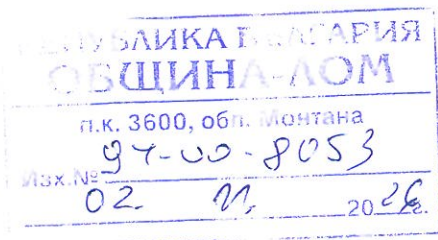 РЕПУБЛИКА БЪЛГАРИЯ
ОБЩИНА - ЛОМ
п.к. 3600, обл. Монтана
Изх.№ 94-00-8053
02. 11. 2026г.